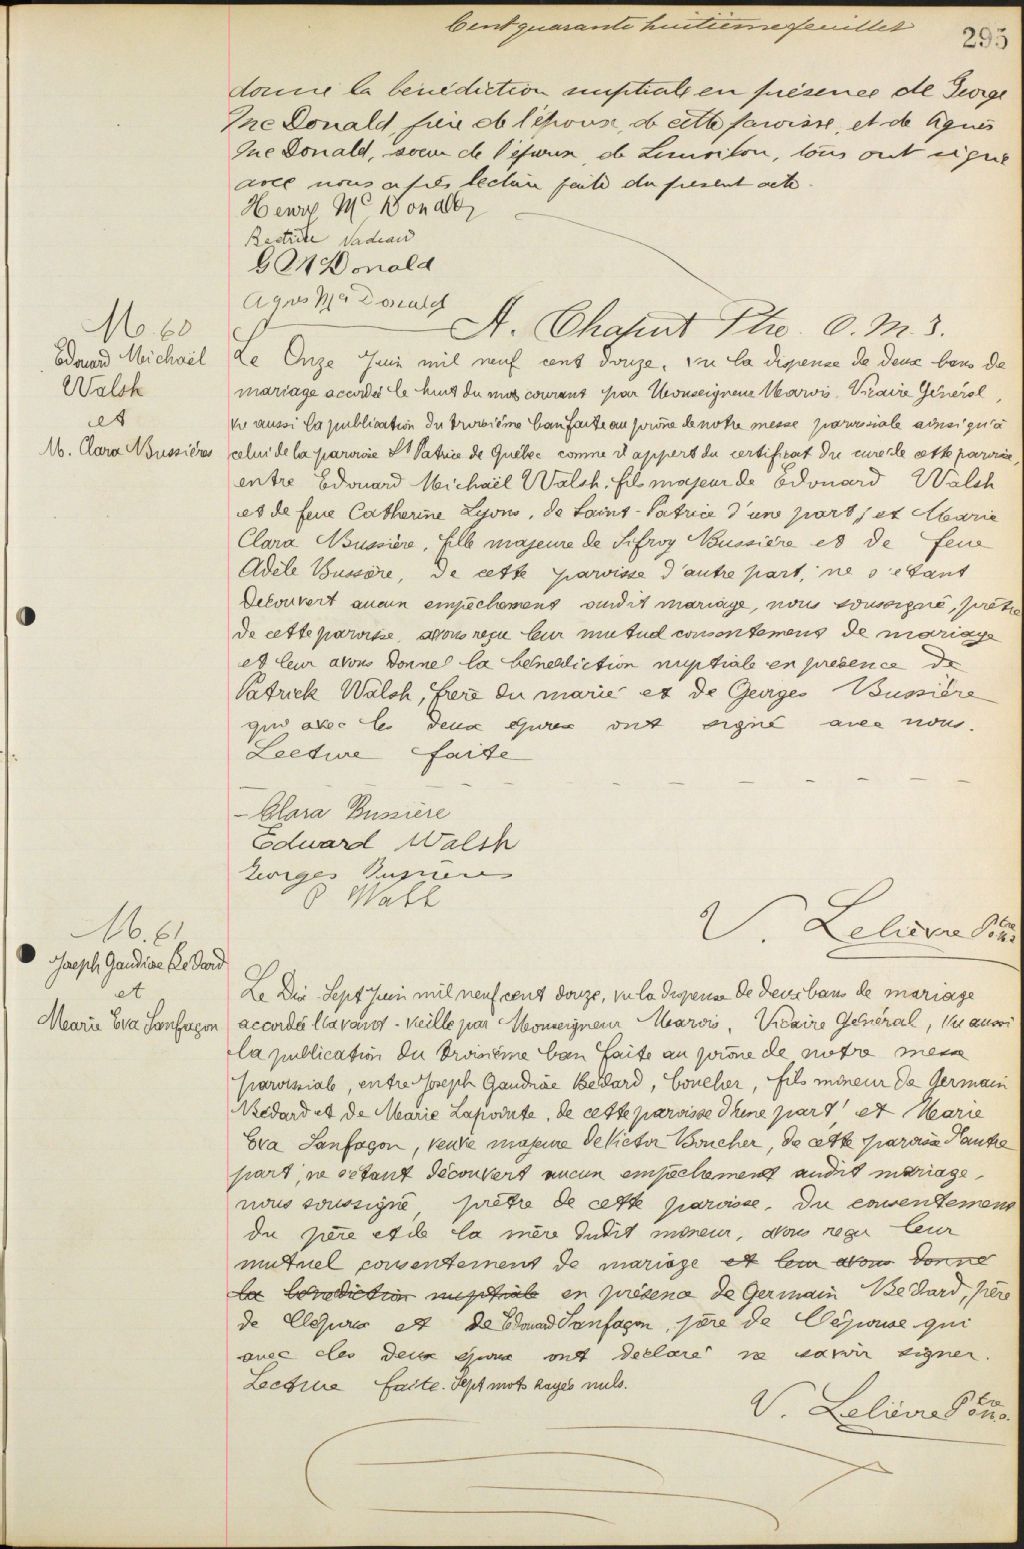 Cent quarante huitième feuillet
295
donné la bénédiction nuptiale en présence de George
Mc Donald, frère de l'époux, de cette paroisse, et de Agnès
Mc Donald, soeur de l'époux, de Limoilou, tous ont signé
avec nous après lecture faite du présent acte.
Henry Mc Donald
Béatrice Nadeau
G McDonald
Agnes Mc Donald
A. Chaput Ptre. O. M. I.
M. 60
Edouard Michaël
Walsh
et
M. Clara Bussières
Le Onze Juin mil neuf cent douze, vu la dispense de deux bans de
mariage accordée le huit du mois courant par Monseigneur Marois, Vicaire Général,
vu aussi la publication du troisième ban faite au prône de notre messe paroissiale ainsi qu'à
celui de la paroisse St Patrice de Québec comme il appert du certificat du curé de cette paroisse,
entre Edouard Michaël Walsh, fils majeur de Edouard Walsh
et de feue Catherine Lyons, de Saint-Patrice d'une part; et Marie
Clara Bussière, fille majeure de Sifroy Bussière et de feue
Adèle Bussière, de cette paroisse d'autre part; ne s'étant
découvert aucun empêchement audit mariage, nous soussigné, prêtre
de cette paroisse, avons reçu leur mutuel consentement de mariage
et leur avons donné la bénédiction nuptiale en présence de
Patrick Walsh, frère du marié et de Georges Bussière
qui avec les deux époux ont signé avec nous.
Lecture faite
Clara Bussière
Edward Walsh
Georges Bussières
P Walsh
V. Lelièvre Ptre o.m.i.
M. 61
Joseph Gaudiose Bédard
et
Marie Eva Sanfaçon
Le Dix-Sept Juin mil neuf cent douze, vu la dispense de deux bans de mariage
accordée l'avant-veille par Monseigneur Marois, Vicaire Général, vu aussi
la publication du troisième ban faite au prône de notre messe
paroissiale, entre Joseph Gaudiose Bédard, boucher, fils mineur de Germain
Bédard et de Marie Lapointe, de cette paroisse d'une part; et Marie
Eva Sanfaçon, veuve majeure de Victor Boucher, de cette paroisse d'autre
part; ne s'étant découvert aucun empêchement audit mariage,
nous soussigné, prêtre de cette paroisse, du consentement
du père et de la mère dudit mineur, avons reçu leur
mutuel consentement de mariage et leur avons donné
la bénédiction nuptiale en présence de Germain Bédard, père
de l'époux et de Edouard Sanfaçon, père de l'épouse qui
avec les deux époux ont déclaré ne savoir signer.
Lecture faite. Sept mots rayés nuls.
V. Lelièvre Ptre o.m.i.